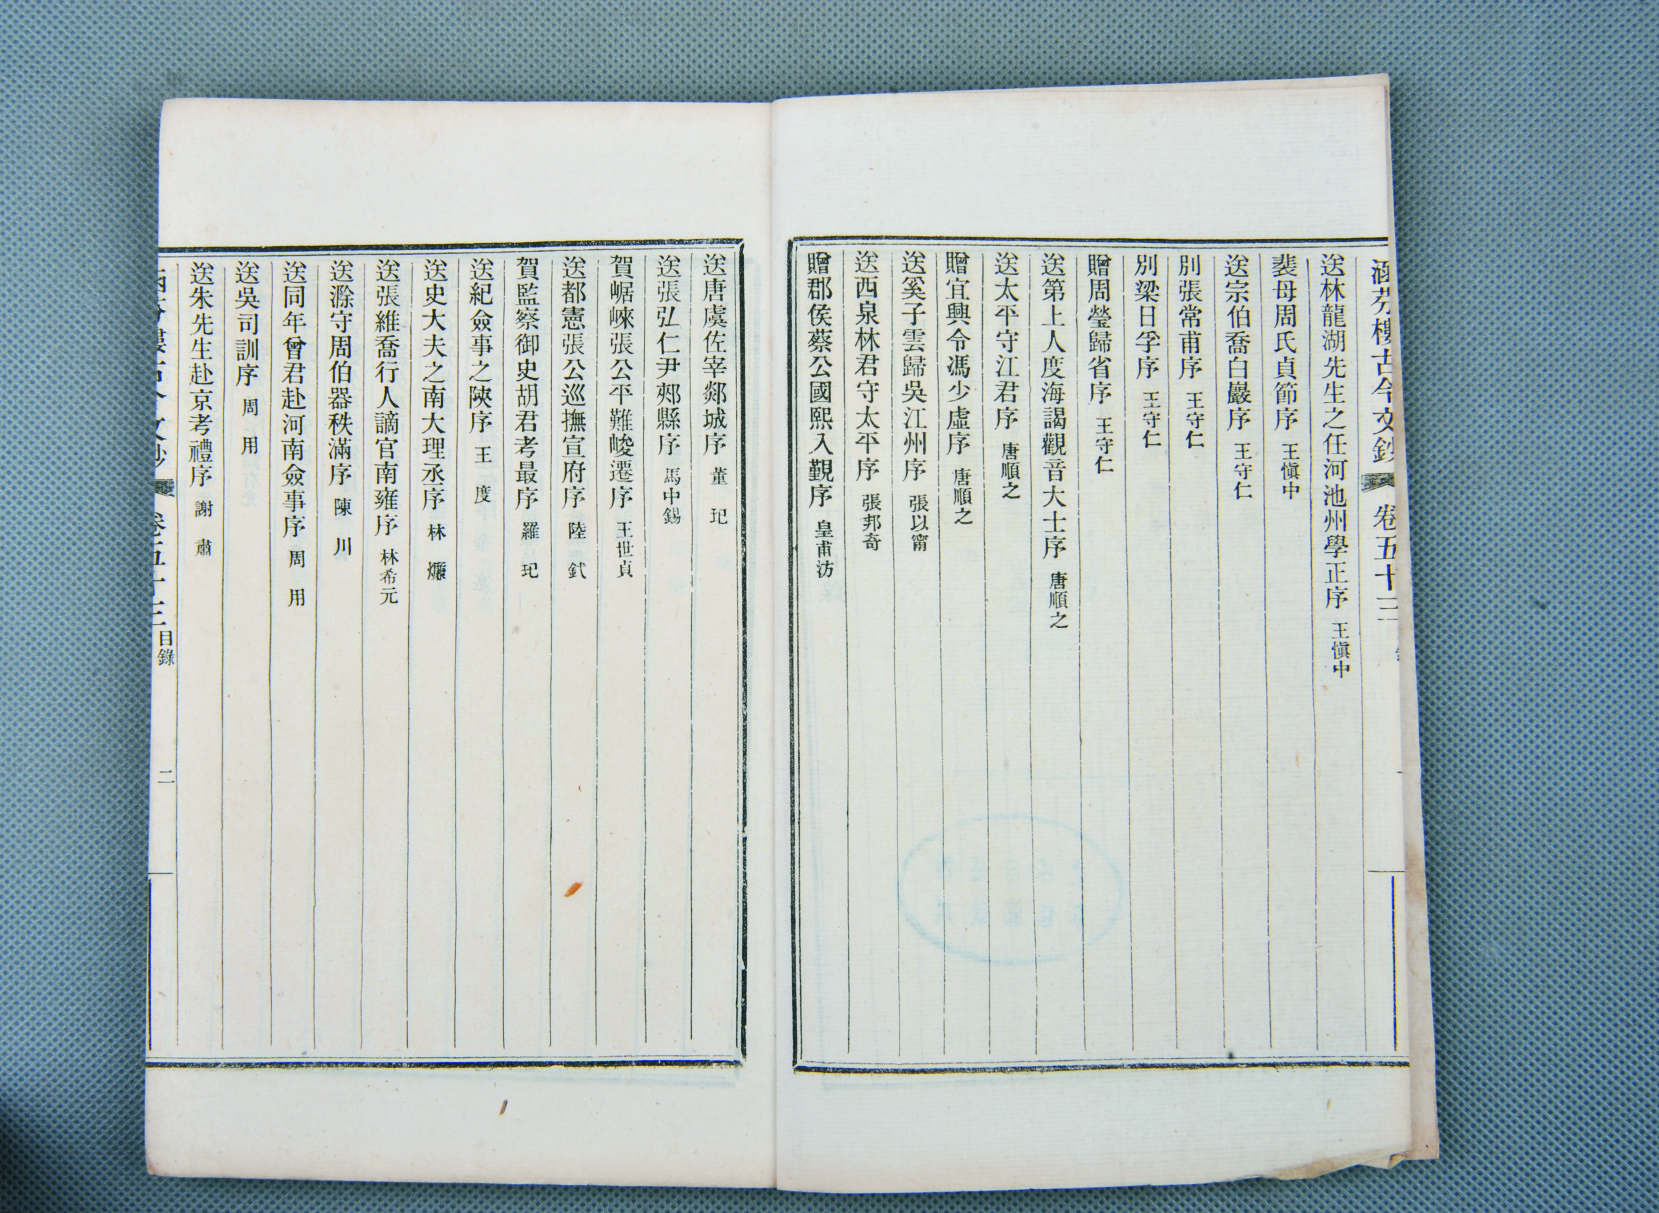 涵芬樓古今文鈔 卷五十三
送林龍湖先生之任河池州學正序 王愼中
裴母周氏貞節序 王愼中
送宗伯喬白巖序 王守仁
別張常甫序 王守仁
別梁日孚序 王守仁
贈周瑩歸省序 王守仁
送第上人度海謁觀音大士序 唐順之
送太平守江君序 唐順之
贈宜興令馮少虛序 唐順之
送奚子雲歸吳江州序 張以甯
送西泉林君守太平序 張邦奇
贈郡侯蔡公國熙入覲序 皇甫汸
送唐虞佐宰郯城序 董 玘
送張弘仁尹郟縣序 馬中錫
賀崌崍張公平難峻遷序 王世貞
送都憲張公巡撫宣府序 陸 釴
賀監察御史胡君考最序 羅 玘
送紀僉事之陝序 王 度
送史大夫之南大理丞序 林 爌
送張維喬行人謫官南雍序 林希元
送滁守周伯器秩滿序 陳 川
送同年曾君赴河南僉事序 周 用
送吳司訓序 周 用
送朱先生赴京考禮序 謝 肅
涵芬樓古今文鈔 卷五十三 目錄 二